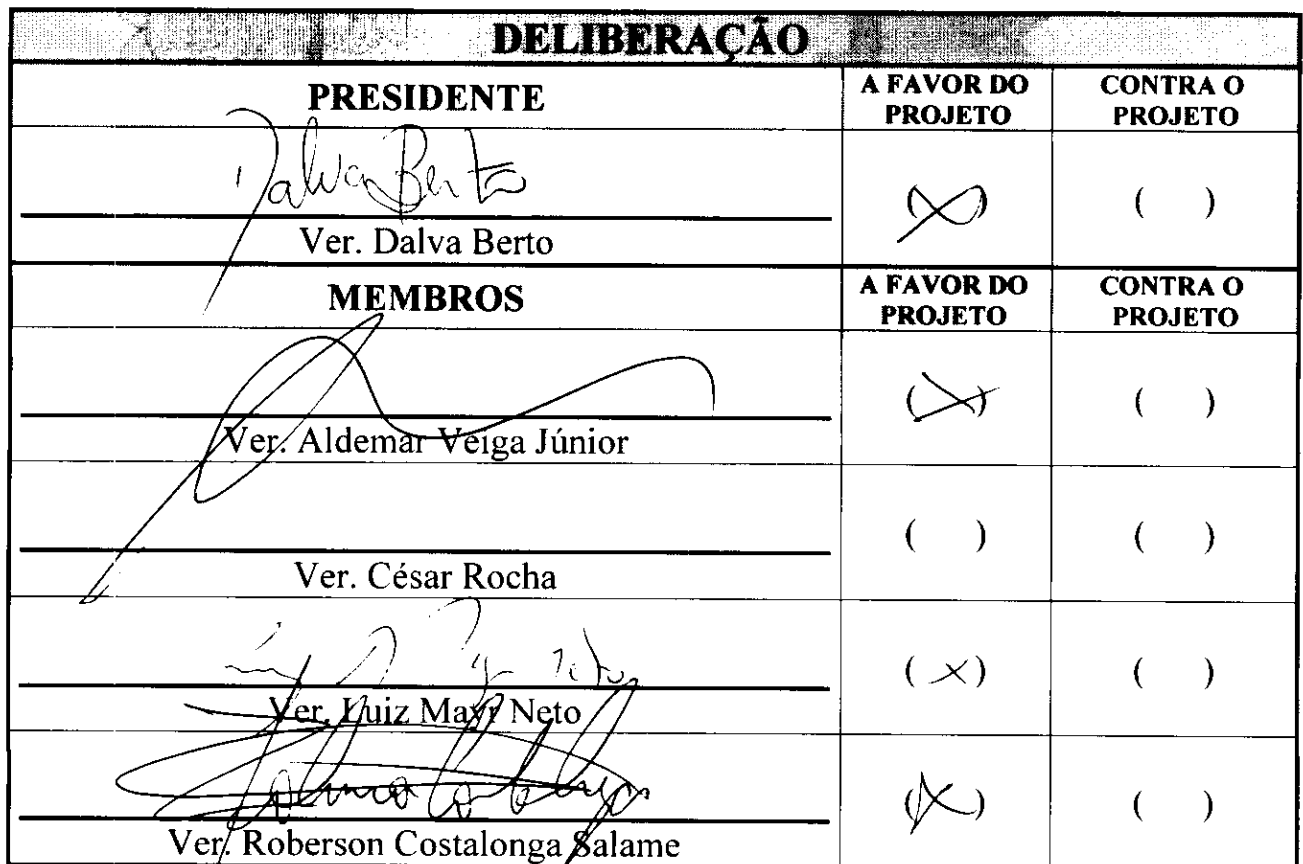 DELIBERAÇÃO
PRESIDENTE
A FAVOR DO PROJETO
CONTRA O PROJETO
Dalva Berto
(X)
( )
Ver. Dalva Berto
MEMBROS
A FAVOR DO PROJETO
CONTRA O PROJETO
(X)
( )
Ver. Aldemar Veiga Júnior
( )
( )
Ver. César Rocha
(X)
( )
Ver. Luiz Mayr Neto
(X)
( )
Ver. Roberson Costalonga Salame